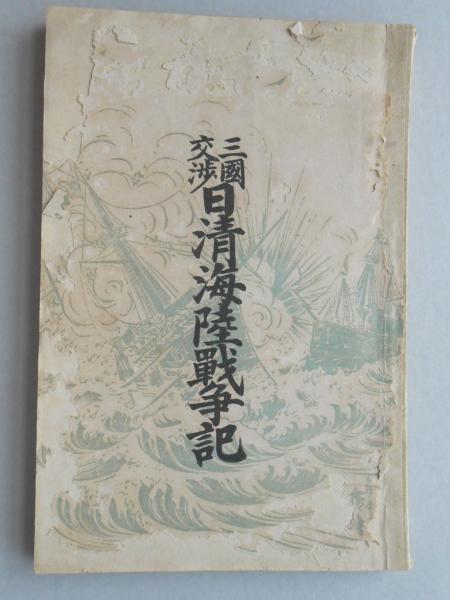 三國
交渉
日清海陸戰争記